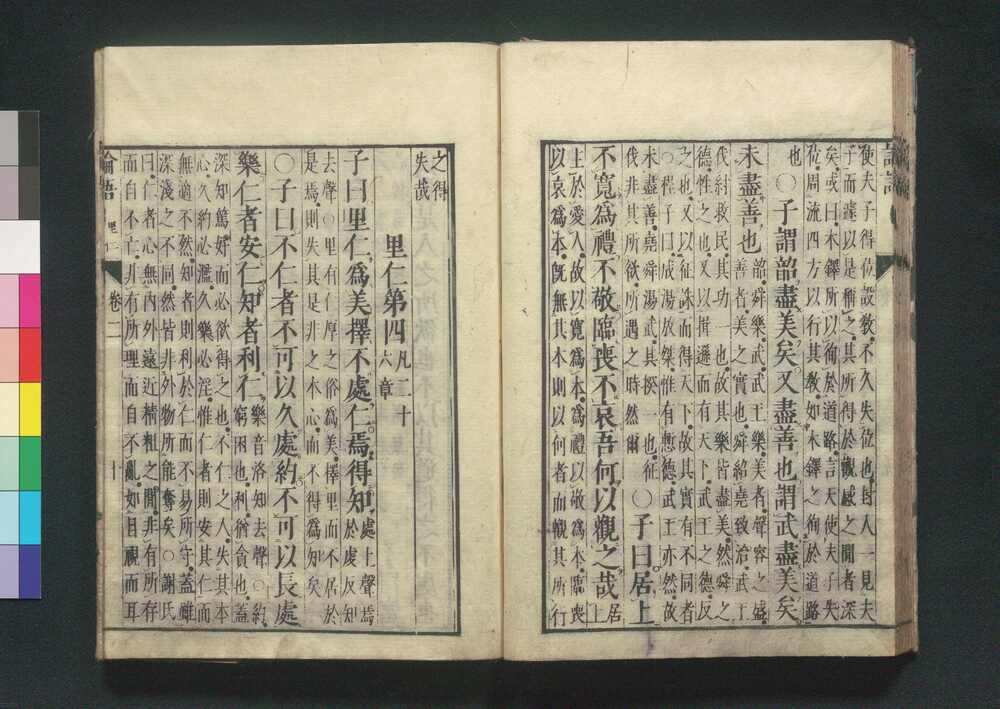 使夫子得位設敎不久失位也封人一見夫
子而遽以是稱之其所得於觀感之閒者深
矣或曰木鐸所以徇於道路言天使夫子失
位周流四方以行其敎如木鐸之徇於道路
也
○子謂韶盡美矣又盡善也謂武盡美矣
未盡善也
韶舜樂武武王樂美者聲容之盛
善者美之實也舜紹堯致治武王
伐紂救民其功一也故其樂皆盡美然舜之
德性之也又以揖遜而有天下武王之德反
之也又以征誅而得天下故其實有不同者
○程子曰成湯放桀惟有慙德武王亦然故
未盡善堯舜湯武其揆一也征
伐非其所欲所遇之時然爾
○子曰居上
不寬爲禮不敬臨喪不哀吾何以觀之哉
居
上
主於愛人故以寬爲本爲禮以敬爲本臨喪
以哀爲本旣無其本則以何者而觀其所行
之得
失哉
里仁第四
凡二十
六章
子曰里仁爲美擇不處仁焉得知
處上聲焉
於虔反知
去聲○里有仁厚之俗爲美擇里而不居於
是焉則失其是非之本心而不得爲知矣
○子曰不仁者不可以久處約不可以長處
樂仁者安仁知者利仁
樂音洛知去聲○約
窮困也利猶貪也蓋
深知篤好而必欲得之也不仁之人失其本
心久約必濫久樂必淫惟仁者則安其仁而
無適不然知者則利於仁而不易所守蓋雖
深淺之不同然皆非外物所能奪矣○謝氏
曰仁者心無內外遠近精粗之閒非有所存
而自不亡非有所理而自不亂如目視而耳
論語 里仁 卷二 十